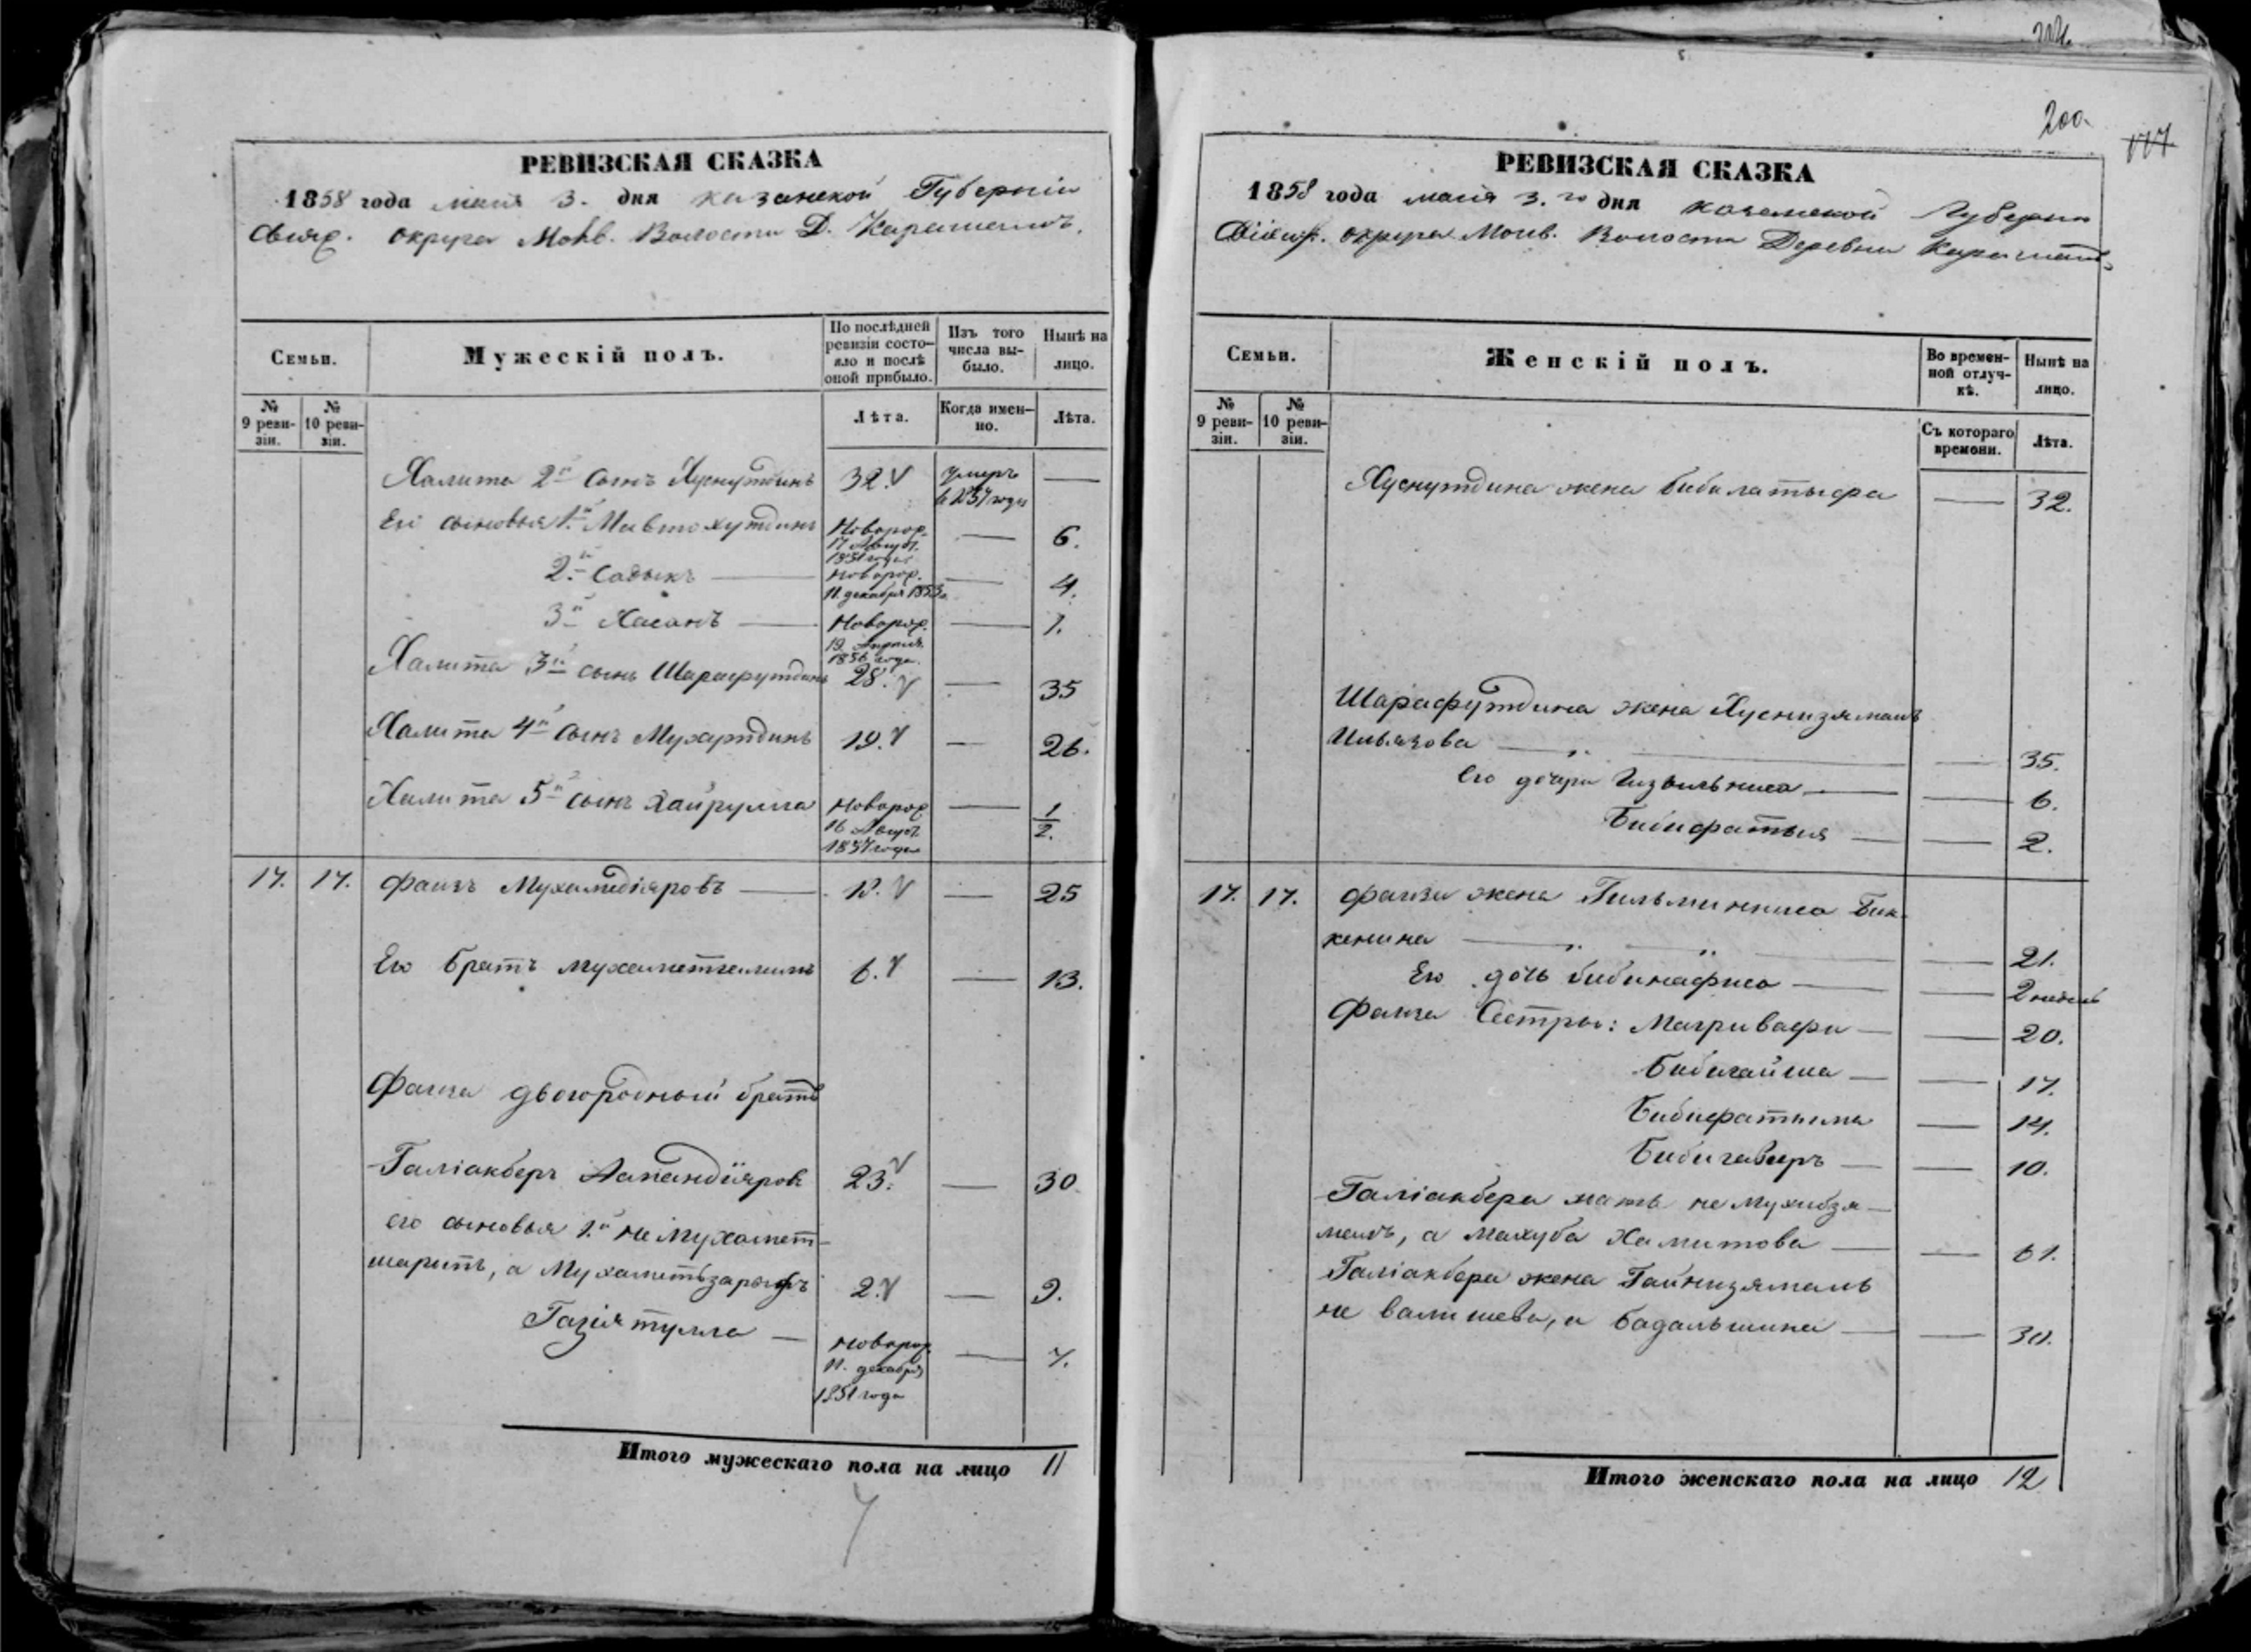 РЕВИЗСКАЯ СКАЗКА
1858 года мая 3. дня Казанской Губерніи
Свіяж. округа Мокв. Волости Д. Карашамъ.
Семьи.
Мужескій полъ.
По послѣдней ревизіи состояло и послѣ оной прибыло.
Изъ того числа выбыло.
Нынѣ на лицо.
№ 9 ревизіи.
№ 10 ревизіи.
Лѣта.
Когда именно.
Лѣта.
Халита 2й сынъ Хуснутдинъ 32. умеръ — 
в 1857 годе
Его сыновья 1й Мавтохутдинъ Новорож. 17 Август. 1851 года — 6.
2й Садыкъ — Новорож. 11. декабря 1853 — 4.
3й Хасанъ — Новорож. 19 Апреля 1856 года. — 1.
Халита 3й сынъ Шарафутдинъ 28. — 35
Халита 4й сынъ Мухартдинъ 19. — 26.
Халита 5й сынъ Хайрулла Новорож 16 Август 1857 года — 1/2.
17. 17. Фаизъ Мухамедіяровъ — 18. — 25
Его братъ Мухаметгалимъ 6. — 13.
Фаиза двоюродный братъ
Галіакберъ Аапандіяровъ 23. — 30
его сыновья 1й не Мухамет-
шарипъ, а Мухаметьзарыфъ 2. — 9.
Газіятулла — новорож. 11. декабря 1851 года — 7.
Итого мужескаго пола на лицо 11
200
РЕВИЗСКАЯ СКАЗКА
1858 года мая 3.го дня Казанской Губерніи
Свіяж. округа Мокв. Волости Деревни Карашамъ
Семьи.
Женскій полъ.
Во временной отлучкѣ.
Нынѣ на лицо.
№ 9 ревизіи.
№ 10 ревизіи.
Съ котораго времени.
Лѣта.
Хуснутдина жена Бибилатыфа — 32.
Шарафутдина жена Хуснизямалъ
Ильязова — „ — — 35.
Его дочери Гизьильниса — — 6.
Бибифатыя — — 2.
17. 17. Фаиза жена Гильминниса Бик-
кенина — „ — „ — — 21.
Его дочь Бибинафиса — — 2 недель
Фаиза Сестры: Магривафа — — 20.
Бибигайша — — 17.
Бибифатыма — 14.
Бибигавгеръ — — 10.
Галіакбера мать не Мухибзя-
малъ, а Махуба Хамитова — — 61.
Галіакбера жена Гайнизямаль
не Валишева, а Бадальшина — — 30.
Итого женскаго пола на лицо 12